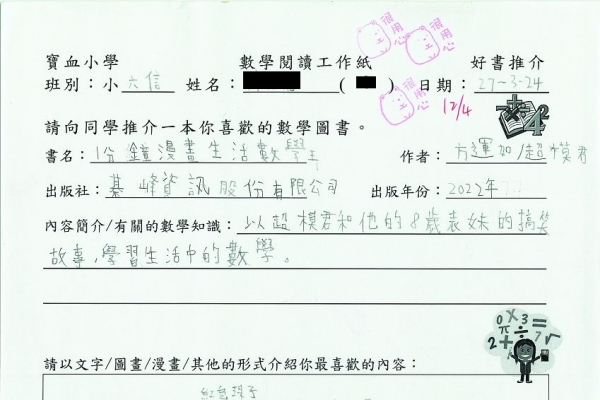 寶血小學 數學閱讀工作紙 好書推介
班別：小六信 姓名： ( ) 日期：27-3-24
很用心
很用心
很用心
12/4
請向同學推介一本你喜歡的數學圖書。
書名：1分鐘漫畫生活數學王 作者：方運加/超模君
出版社：碁峰資訊股份有限公司 出版年份：2022年
內容簡介/有關的數學知識：以超模君和他的8歲表妹的搞笑
故事,學習生活中的數學。
請以文字/圖畫/漫畫/其他的形式介紹你最喜歡的內容：
紅色珠子